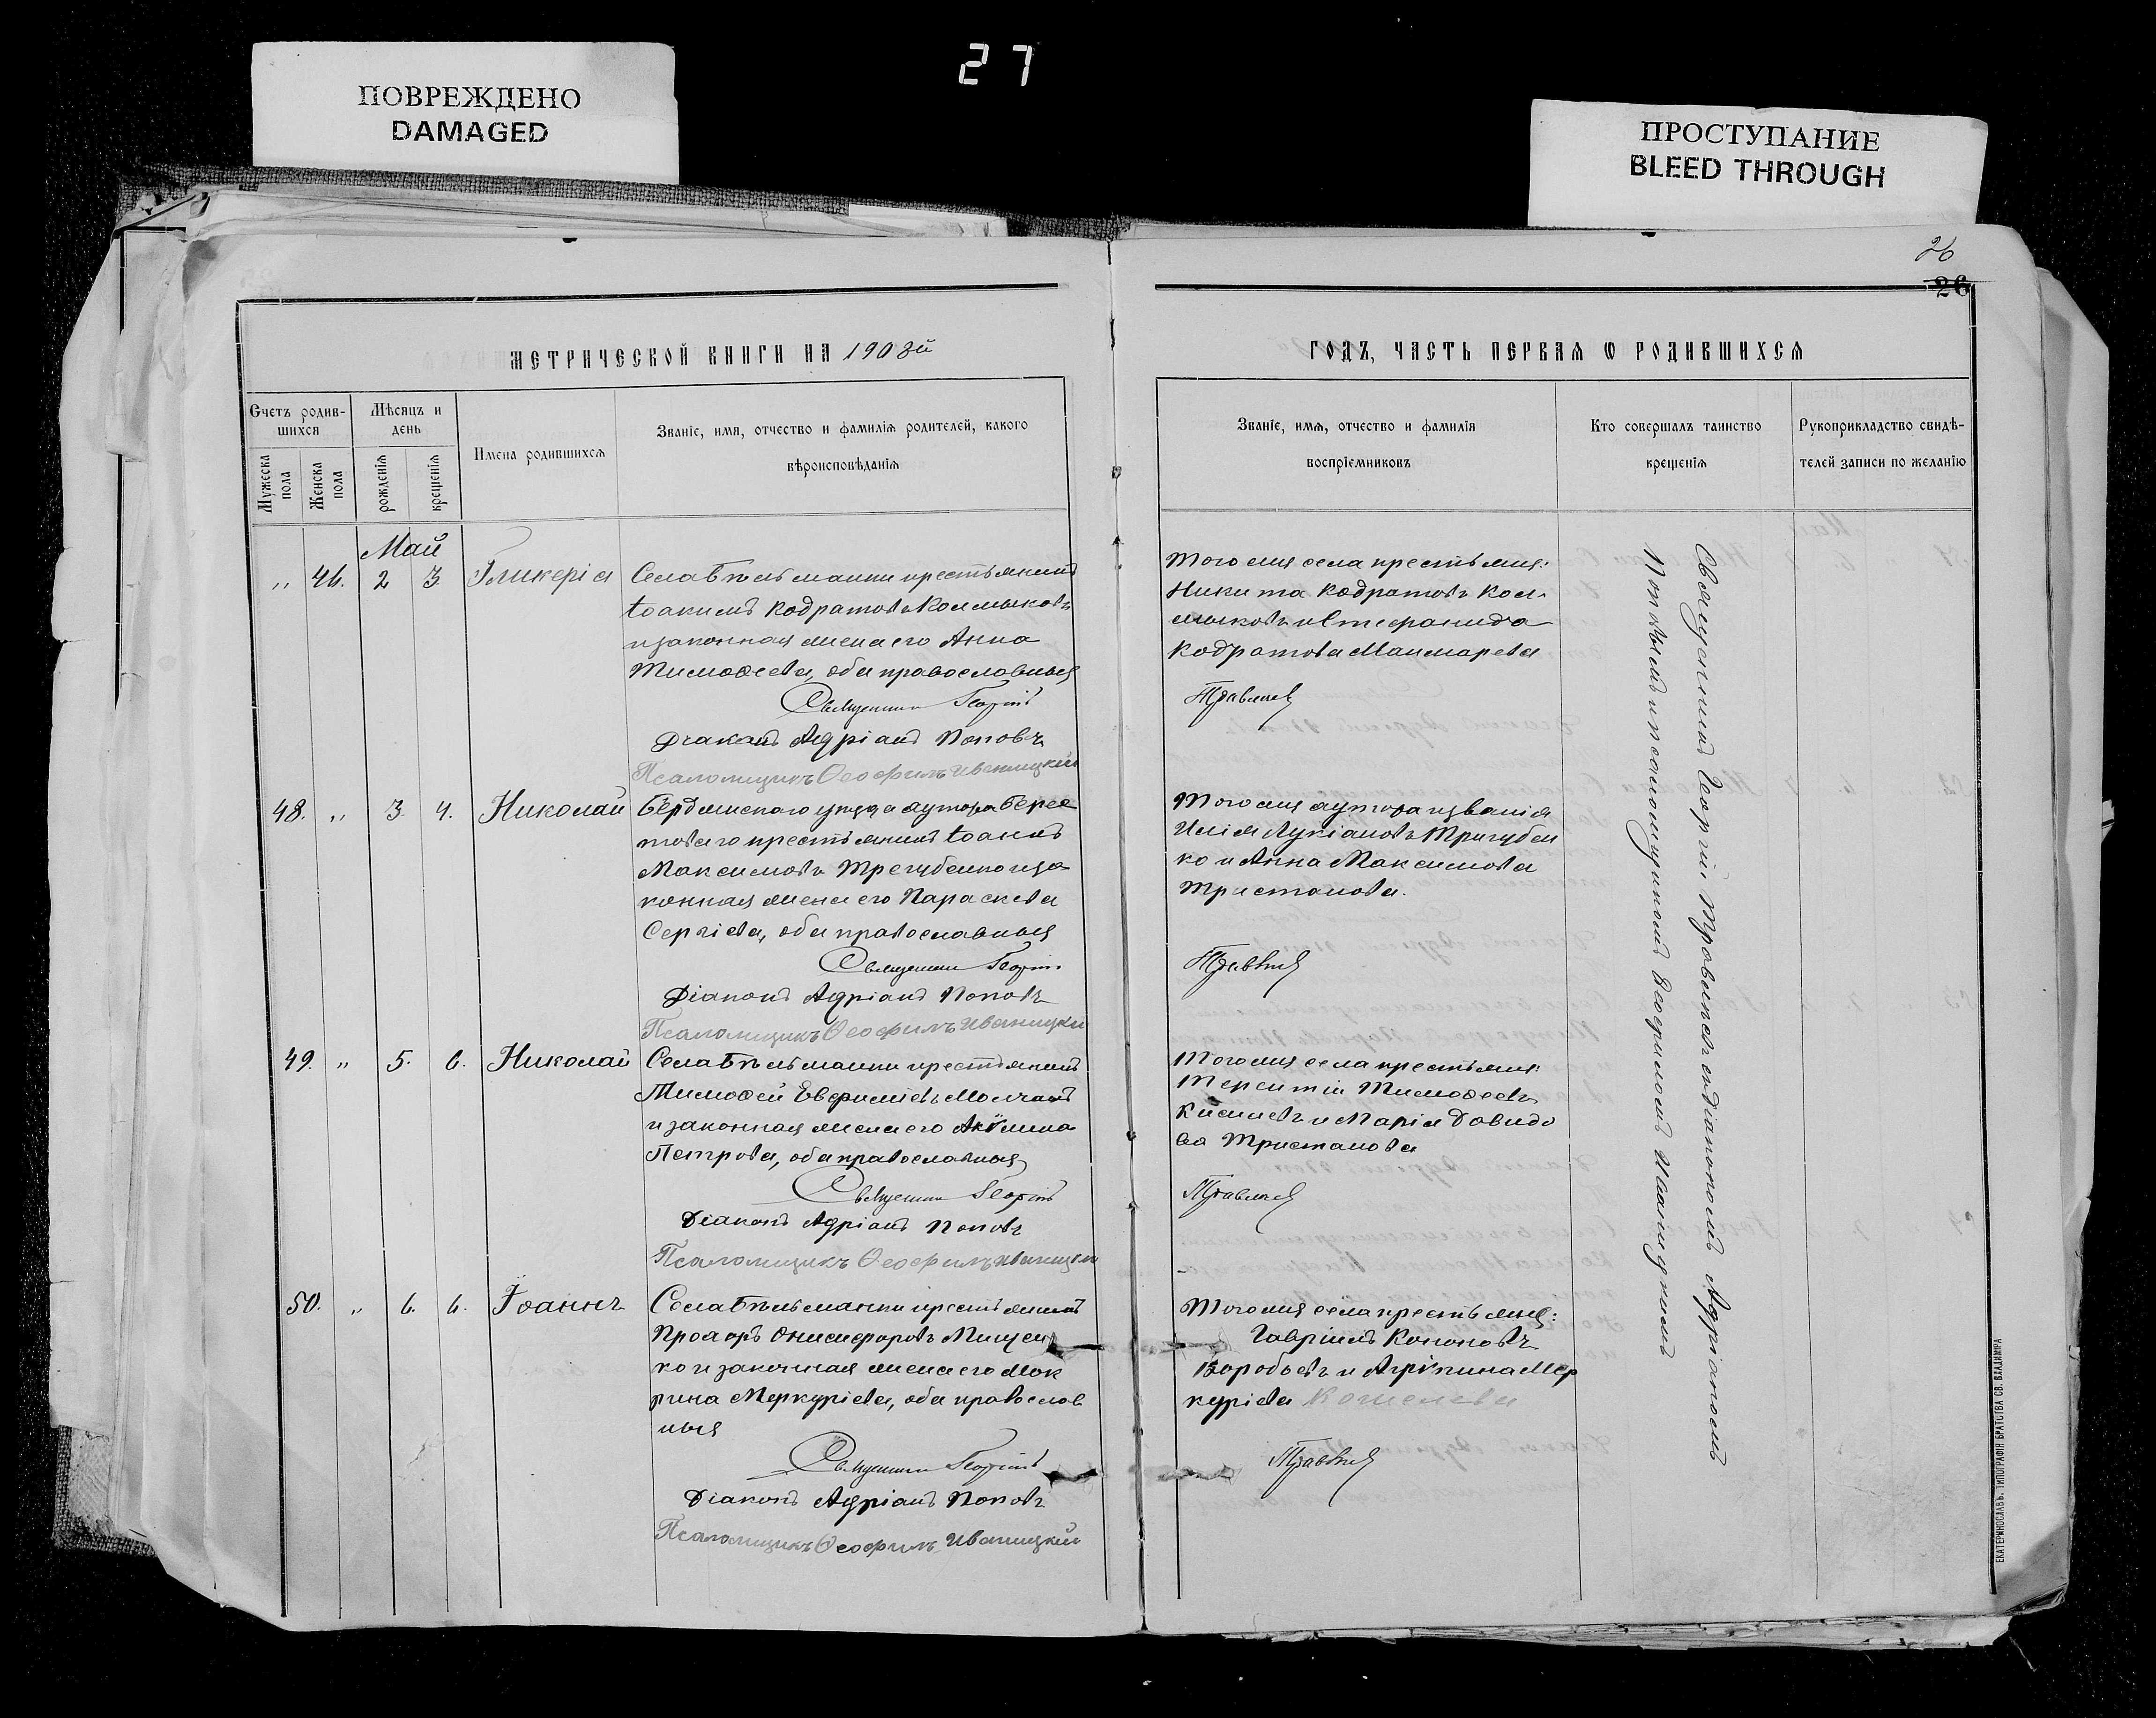 27
ПОВРЕЖДЕНО
DAMAGED
ПРОСТУПАНИЕ
BLEED THROUGH
26
26
МЕТРИЧЕСКОЙ КНИГИ НА 1903й
Счетъ родив-
шихся
Мужеска
пола
Женска
пола
Мѣсяцъ и
день
рожденія
крещенія
Имена родившихся
Званіе, имя, отчество и фамилія родителей, какого
вѣроисповѣданія
Май
„ 46. 2 3 Гликерія
Села Бѣльманки крестьянинъ
Іоакимъ Кодратовъ Колмыковъ
и законная жена его Анна
Тимоѳеева, оба православныя
Священникъ Георгій
Діаконъ Адріанъ Поповъ
Псаломщикъ Ѳеофилъ Иваницкій
48. „ 3. 4. Николай
Бердянскаго уѣзда хутора Берес
товаго крестьянинъ Іоаннъ
Максимовъ Трегубенко и за
конная жена его Параскева
Сергіева, оба православныя
Священникъ Георгій
Діаконъ Адріанъ Поповъ
Псаломщикъ Ѳеофилъ Иваницкій
49. „ 5. 6. Николай
Села Бѣльманки крестьянинъ
Тимоѳей Евфиміевъ Молчанъ
и законная жена его Акѵлина
Петрова, оба православныя
Священникъ Георгій
Діаконъ Адріанъ Поповъ
Псаломщикъ Ѳеофилъ Иваницкій
50. „ 6. 6. Іоаннъ
Села Бѣльманки крестьянинъ
Прохоръ Онисифоровъ Мищен
ко и законная жена его Мок
рина Меркуріева, оба православ
ныя
Священникъ Георгій
Діаконъ Адріанъ Поповъ
Псаломщикъ Ѳеофилъ Иваницкій
ГОДЪ, ЧАСТЬ ПЕРВАЯ Ѡ РОДИВШИХСЯ
Званіе, имя, отчество и фамилія
воспріемниковъ
Кто совершалъ таинство
крещенія
Рукоприкладство свидѣ-
телей записи по желанію
Того же села крестьяне:
Никита Кодратовъ Кол-
мыковъ и Стефанида
Кодратова
Того же хутора и званія
Илія Лукіановъ Тригубен
ко и Анна Максимова
Тристанова.
Того же села крестьяне:
Терентій Тимоѳеевъ
и Марія Давидо
ва Тристанова
Того же села крестьяне:
Гавріилъ Кононовъ
Воробьевъ и Агрипина Мер
куріева Кошелева
Священникъ Георгій съ діакономъ Адріаномъ
Поповымъ и псаломщикомъ Ѳеофиломъ Иваницкимъ
ЕКАТЕРИНОСЛАВЪ. ТИПОГРАФІЯ БРАТСТВА СВ. ВЛАДИМІРА